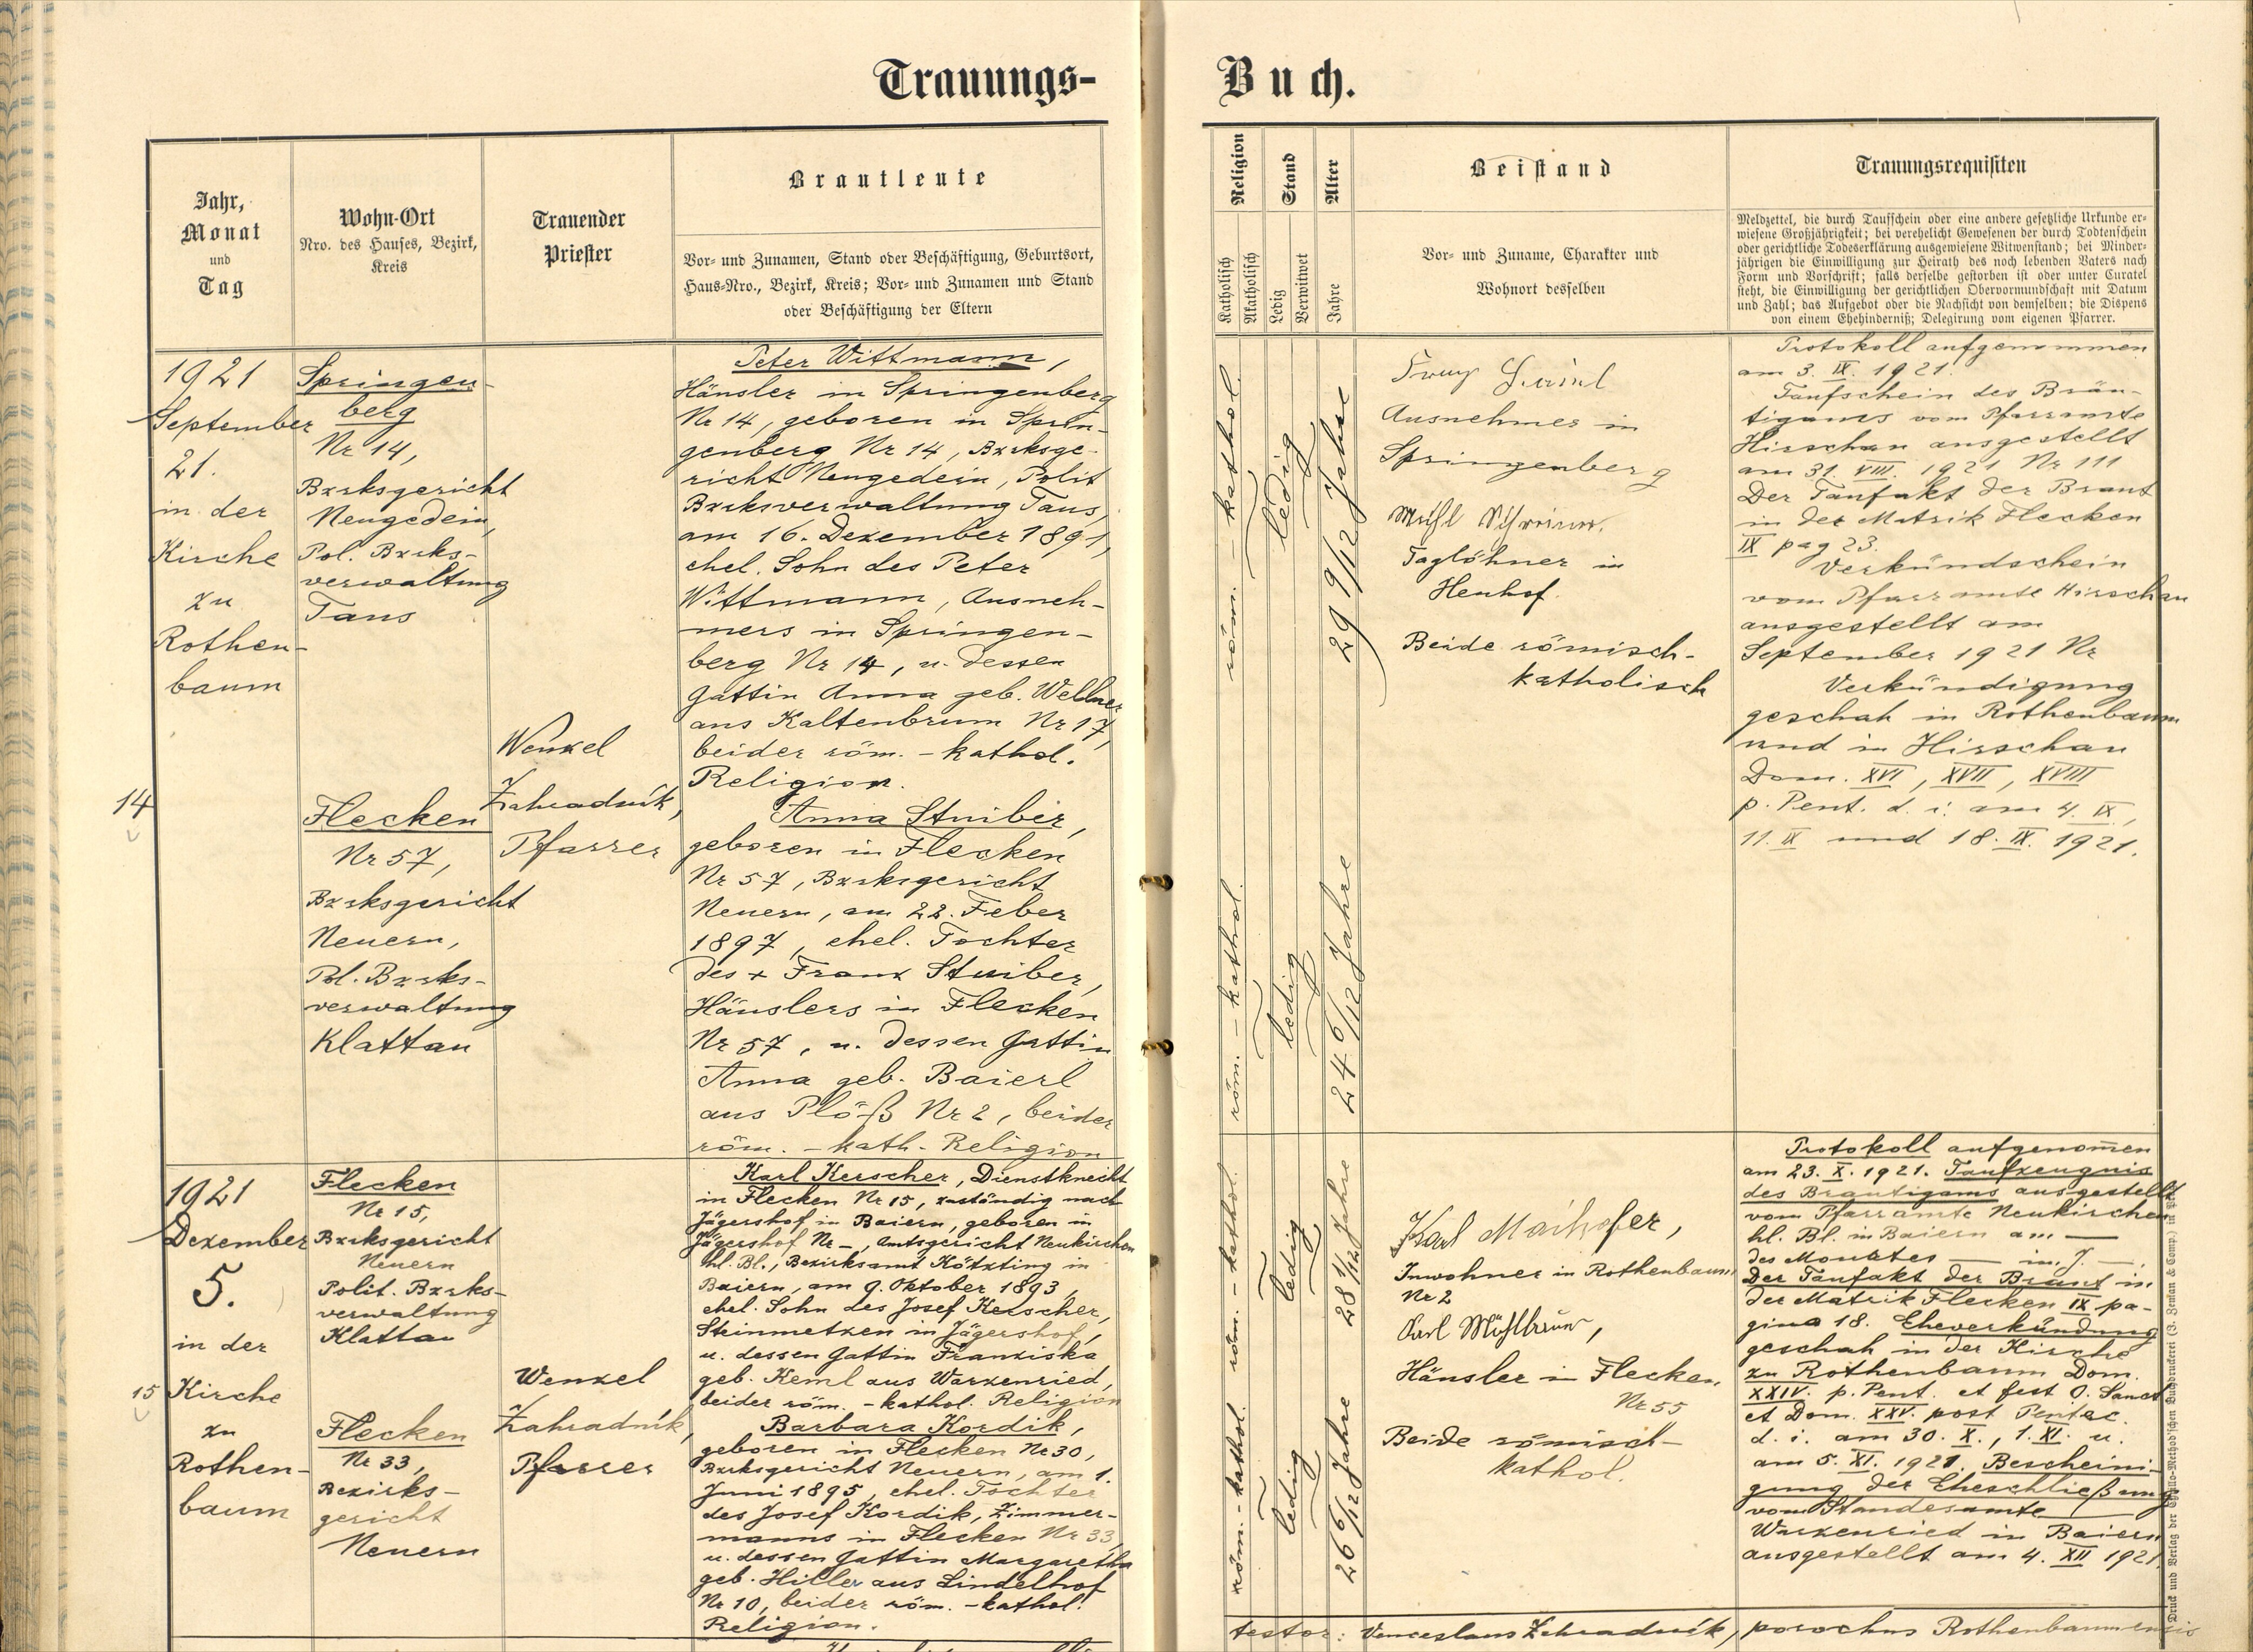 Trauungs-
Buch.
Jahr,
Monat
und
Tag
Wohn-Ort
Nro. des Hauses, Bezirk,
Kreis
Trauender
Priester
Brautleute
Vor- und Zunamen, Stand oder Beschäftigung, Geburtsort,
Haus-Nro., Bezirk, Kreis; Vor- und Zunamen und Stand
oder Beschäftigung der Eltern
Religion
Katholisch
Akatholisch
Stand
Ledig
Verwitwet
Alter
Jahre
Beistand
Vor- und Zuname, Charakter und
Wohnort desselben
Trauungsrequisiten
Meldzettel, die durch Taufschein oder eine andere gesetzliche Urkunde er-
wiesene Großjährigkeit; bei verehelicht Gewesenen der durch Todtenschein
oder gerichtliche Todeserklärung ausgewiesene Witwenstand; bei Minder-
jährigen die Einwilligung zur Heirath des noch lebenden Vaters nach
Form und Vorschrift; falls derselbe gestorben ist oder unter Curatel
steht, die Einwilligung der gerichtlichen Obervormundschaft mit Datum
und Zahl; das Aufgebot oder die Nachsicht von demselben; die Dispens
von einem Ehehinderniß; Delegirung vom eigenen Pfarrer.
14
1921
September
21.
in der
Kirche
zu
Rothen-
baum
Springen-
berg
Nr 14,
Bzrksgericht
Neugedein,
Pol. Bzrks-
verwaltung
Taus
Flecken
Nr 57,
Bzrksgericht
Neuern,
Pol. Bzrks-
verwaltung
Klattau
Wenzel
Zahradník,
Pfarrer
Peter Wittmann,
Häusler in Springenberg
Nr 14, geboren in Sprin-
genberg Nr 14, Bzrksge-
richt Neugedein, Polit
Bzrksverwaltung Taus,
am 16. Dezember 1891,
ehel. Sohn des Peter
Wittmann, Ausneh-
mers in Springen-
berg Nr 14, u. dessen
Gattin Anna geb. Wellner
aus Kaltenbrunn Nr 17,
beider röm. - kathol.
Religion.
Anna Stuiber,
geboren in Flecken
Nr 57, Bzrksgericht
Neuern, am 22. Feber
1897, ehel. Tochter
des + Franz Stuiber,
Häuslers in Flecken
Nr 57, u. dessen Gattin
Anna geb. Baierl
aus Plöß Nr 2, beider
röm. - kath. Religion
röm. - kathol.
ledig
29 9/12 Jahre
röm. - kathol.
ledig
24 6/12 Jahre
Franz
Ausnehmer in
Springenberg
Taglöhner in
Heuhof.
Beide römisch-
katholisch
Protokoll aufgenommen
am 3. IX. 1921.
Taufschein des Bräu-
tigams vom Pfarramte
Hirschau ausgestellt
am 31. VIII. 1921 Nr 111
Der Taufakt der Braut
in der Matrik Flecken
IX pag 23.
Verkündschein
vom Pfarramte Hirschau
ausgestellt am
September 1921 Nr
Verkündigung
geschah in Rothenbaum
und in Hirschau
Dom. XVI, XVII, XVIII
p. Pent. d. i. am 4. IX,
11. IX und 18. IX. 1921.
15
1921
Dezember
5.
in der
Kirche
zu
Rothen-
baum
Flecken
Nr 15,
Bzrksgericht
Neuern
Polit. Bzrks-
verwaltung
Klattau
Flecken
Nr 33,
Bezirks-
gericht
Neuern
Wenzel
Zahradník,
Pfarrer
Karl Kerscher, Dienstknecht
in Flecken Nr 15, zuständig nach
Jägershof in Baiern, geboren in
Jägershof Nr -, Amtsgericht Neukirchen
hl. Bl., Bezirksamt Kötzting in
Baiern, am 9. Oktober 1893,
ehel. Sohn des Josef Kerscher,
Steinmetzen in Jägershof,
u. dessen Gattin Franziska
geb. Keml aus Warzenried,
beider röm. - kathol. Religion
Barbara Kordik,
geboren in Flecken Nr 30,
Bzrksgericht Neuern, am 1.
Juni 1895, ehel. Tochter
des Josef Kordik, Zimmer-
manns in Flecken Nr 33,
u. dessen Gattin Margaretha
geb. Hiller aus Lindelhof
Nr 10, beider röm. - kathol.
Religion.
röm. - kathol.
ledig
28 1/12 Jahre
röm. - kathol.
ledig
26 6/12 Jahre
Karl Maihofer,
Inwohner in Rothenbaum
Nr 2
Karl Mühlbauer,
Häusler in Flecken,
Nr 55
Beide römisch-
kathol.
Protokoll aufgenom̅en
am 23. X. 1921. Taufzeugnis
des Brautigams ausgestellt
vom Pfarramte Neukirchen
hl. Bl. in Baiern am —
des Monates — im J. —.
Der Taufakt der Braut in
der Matrik Flecken IX pa-
gina 18. Eheverkündung
geschah in der Kirche
zu Rothenbaum Dom.
XXIV. p. Pent. et fest O. Sanct
et Dom. XXV. post Pentec.
d. i. am 30. X., 1. XI. u.
am 5. XI. 1921. Bescheini-
gung der Eheschließung
vom Standesamte
Warzenried in Baiern
ausgestellt am 4. XII 1921.
testor: Venceslaus Zahradník, parochus Rothenbaumensis